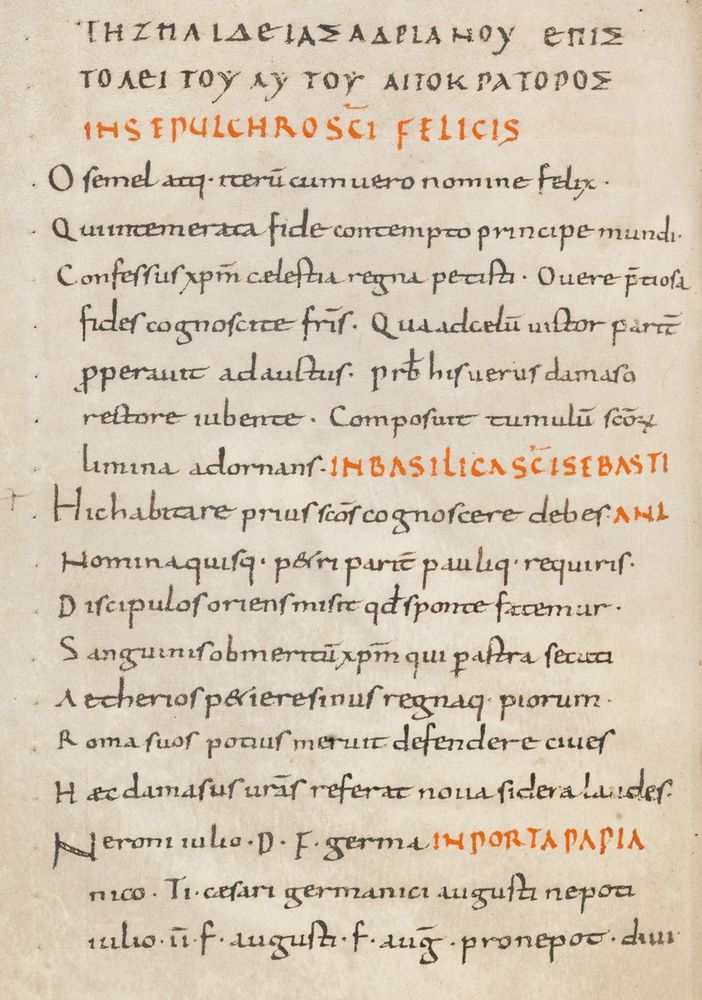 ΤΗΖΠΛΙΔΕΙΑΣΑΔΡΙΑΝΟΥ ΕΠΙΣ
ΤΟΛΕΙ ΤΟΥ ΑΥ ΤΟΥ ΑΠΟΚΡΑΤΟΡΟΣ
IN SEPULCHRO SC̄I FELICIS
O semel atq· iterū cum uero nomine felix·
Qui intemerata fide contempto principe mundi·
Confessus xpm̄ cælestia regna petisti· O uere p̄tiosa
fides cognoscite fr̄s· Qua ad celū uictor parit̄
ꝓperauit adauctus· prb̄ his uerus damaso
rectore iubente· Composuit tumulū sc̄oꝝ
limina adornans· IN BASILICA SC̄I SEBASTI
Hic habitare prius sc̄os cognoscere debes· ANI
Nomina quisq· p&ri parit̄ pauliq· requiris·
Discipulos oriens misit qd̄ sponte fatemur·
Sanguinis ob meritū xpm̄ qui ꝑ astra secuti
Aetherios p&iere sinus regnaq· piorum·
Roma suos potius meruit defendere ciues
Hæc damasus ur̄as referat noua sidera laudes·
Neroni iulio· D· F· germa IN PORTA PAPIA
nico· Ti· cæsari germanici augusti nepoti
iulio· ii̅· f· augusti· f· aug̅· pronepot· diui